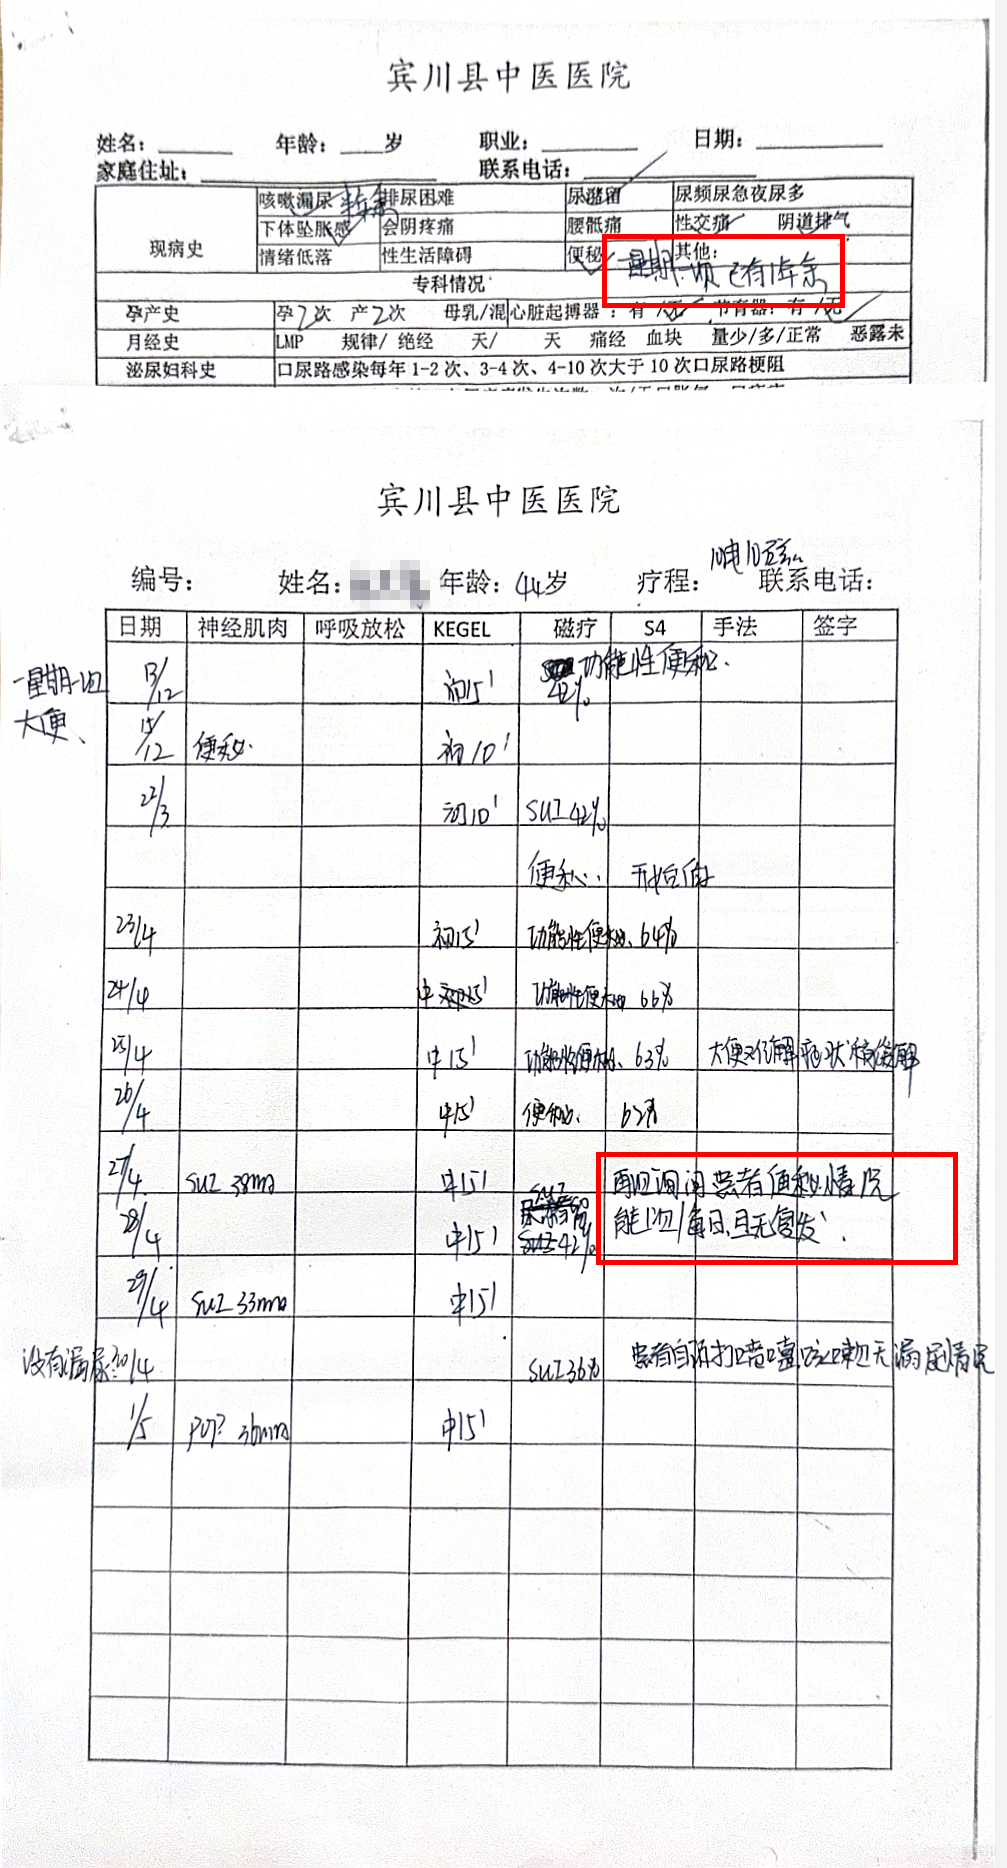 宾川县中医医院
姓名： 年龄： 岁 职业： 日期：
家庭住址： 联系电话：
现病史
咳嗽漏尿 排尿困难 尿潴留 尿频尿急夜尿多
下体坠胀感 会阴疼痛 腰骶痛 性交痛 阴道排气
情绪低落 性生活障碍 便秘 其他：
一星期一次 已有1年余
专科情况
孕产史 孕2次 产2次 母乳/混 心脏起搏器：有/无 节育器：有/无
月经史 LMP 规律/ 绝经 天/ 天 痛经 血块 量少/多/正常 恶露未
泌尿妇科史 口尿路感染每年1-2次、3-4次、4-10次大于10次口尿路梗阻
宾川县中医医院
10电10磁
编号： 姓名： 年龄：44岁 疗程： 联系电话：
日期 神经肌肉 呼吸放松 KEGEL 磁疗 S4 手法 签字
一星期一次大便、
13/12 初15' 功能性便秘.
42%
15/12 便秘. 初10'
22/3 初10' SUI 42%
便秘..
23/4 初15' 功能性便秘、64%
24/4 中15' 功能性便秘 66%
25/4 中15' 功能性便秘、63% 大便又化解 症状稍缓解
26/4 中15' 便秘、 62%
27/4 SUI 38ma 中15' SUI 再次询问患者便秘情况
28/4 中15' 42% 能1次/每日、且无复发.
29/4 SUI 33ma 中15'
没有漏尿: 30/4 SUI 36% 患者自诉打喷嚏咳嗽无漏尿情况
1/5 POP 36ma 中15'